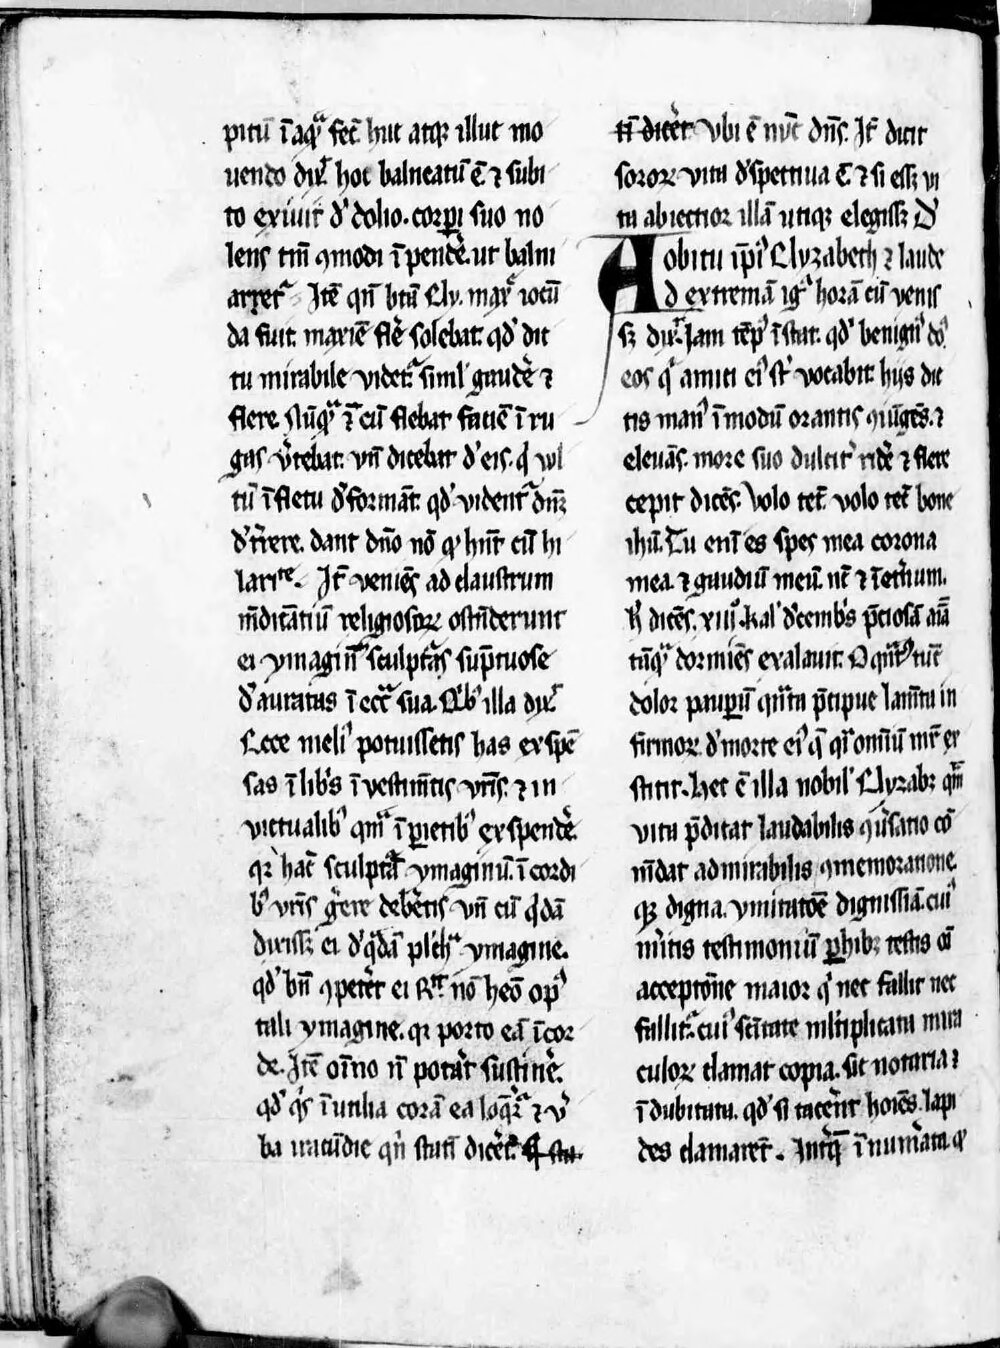 pitū ī aqͣ fec̄ huc atqꝫ illuc mo
uendo dix̄ hoc balneatū ē ⁊ subi
to exiuit d' dolio. corꝑi suo no
lens tm̄ ꝯmodi īpend'e. ut balni
aret᷑ Itē qn̄ btā Ely. max᷑ iocū
da fuit. maxīe fle᷑ solebat. qd' dic
tu mirabile videt᷑ simil' gaud'e ⁊
flere. Nūqͣ ī cū flebat faciē ī ru
gas v'tebat. vn̄ dicebat d' eis. q' vul
tū ī fletu d'formāt. qd' vident᷑ dn̄m
d't'rere. dant dn̄o nō qꝫ hn̄t cū hi
laritͣte. It̄ veniēs ad claustrum
m̄dicātiū religiosoꝝ ostn̄derunt
ei ymagin' sculptas sūptuose
d'auratas ī ecc͞a sua. Qͥbꝰ illa dix̄
Ecce meliꝰ potuissetis has expē
sas ī lib's ī vestimtīs vr̄is. ⁊ in
victualibꝰ qm̄ ī parietibꝰ expend'e.
qꝛ hac̄ sculptͣ ymaginū. ī cordi
bꝰ vr̄is g'ere deb'etis vn̄ cū q̄dā
dixissꝫ ei d' q̄dā pl'chͣ ymagine.
qd' bn̄ ꝯpetēt ei Rn̄t nō heō opꝰ
tali ymagine. qꝛ porto eā ī cor
de. Itē oīno n̄ pot'at sustin'e.
qd' q's īutilia corā ea loq̄r̄et᷑ ⁊ v'
ba iracūdie qn̄ statī dic'et.
n̄ dic'et. Vbi ē nūc dn̄s. It̄ dicit
soror vita d'spectiua ē ⁊ si essꝫ vi
ta abiectior illā utiqꝫ elegissꝫ D'
obitu ip̄iꝰ Elyzabeth ⁊ laude
Ad extremā igͥ horā cū venis
sꝫ dix̄. Iam tēpꝰ īstat. qd' benignꝰ dꝰ
eos qͥ amici eiꝰ st̄ vocabit. hijs dic
tis manꝰ ī modū orantis ꝯiūgēs. ⁊
eleuās. more suo dulcit' rid'e ⁊ flere
cepit dicēs. Volo tec̄. volo tec̄ bone
ihū. Tu enī es spes mea corona
mea ⁊ gaudiū meū. nc̄ ⁊ ī et'num.
h' dicēs. xiiij. kal' d'cembͥs p̄ciosā aīā
tāqͣ dormiēs exalauit. O quātꝰ tūc
dolor pauꝑū qn̄ta p̄cipue lam̄ta in
firmoꝝ d' morte eiꝰ q̄ qͥ omīū mr̄ ex
stitit. Hec ē illa nobil' Elyzabꝫ qm̄
vita p̄dicat laudabilis ꝯu'satio cō
m̄dat admirabilis ꝯmemoratione
qꝫ digna. ymitatōe dignissiā. cuiꝰ
m'itis testimoniū ꝑhibꝫ testis oī
acceptōne maior qͥ nec fallit nec
fallit᷑. cuiꝰ sc̄itate m̄ltiplicata mira
culoꝝ clamat copia. sit notaria ⁊
ī dubitata. qd' si tac'ent hoīes. lapi
des clamarēt. Int' q̄ īnum'ata qꝫ